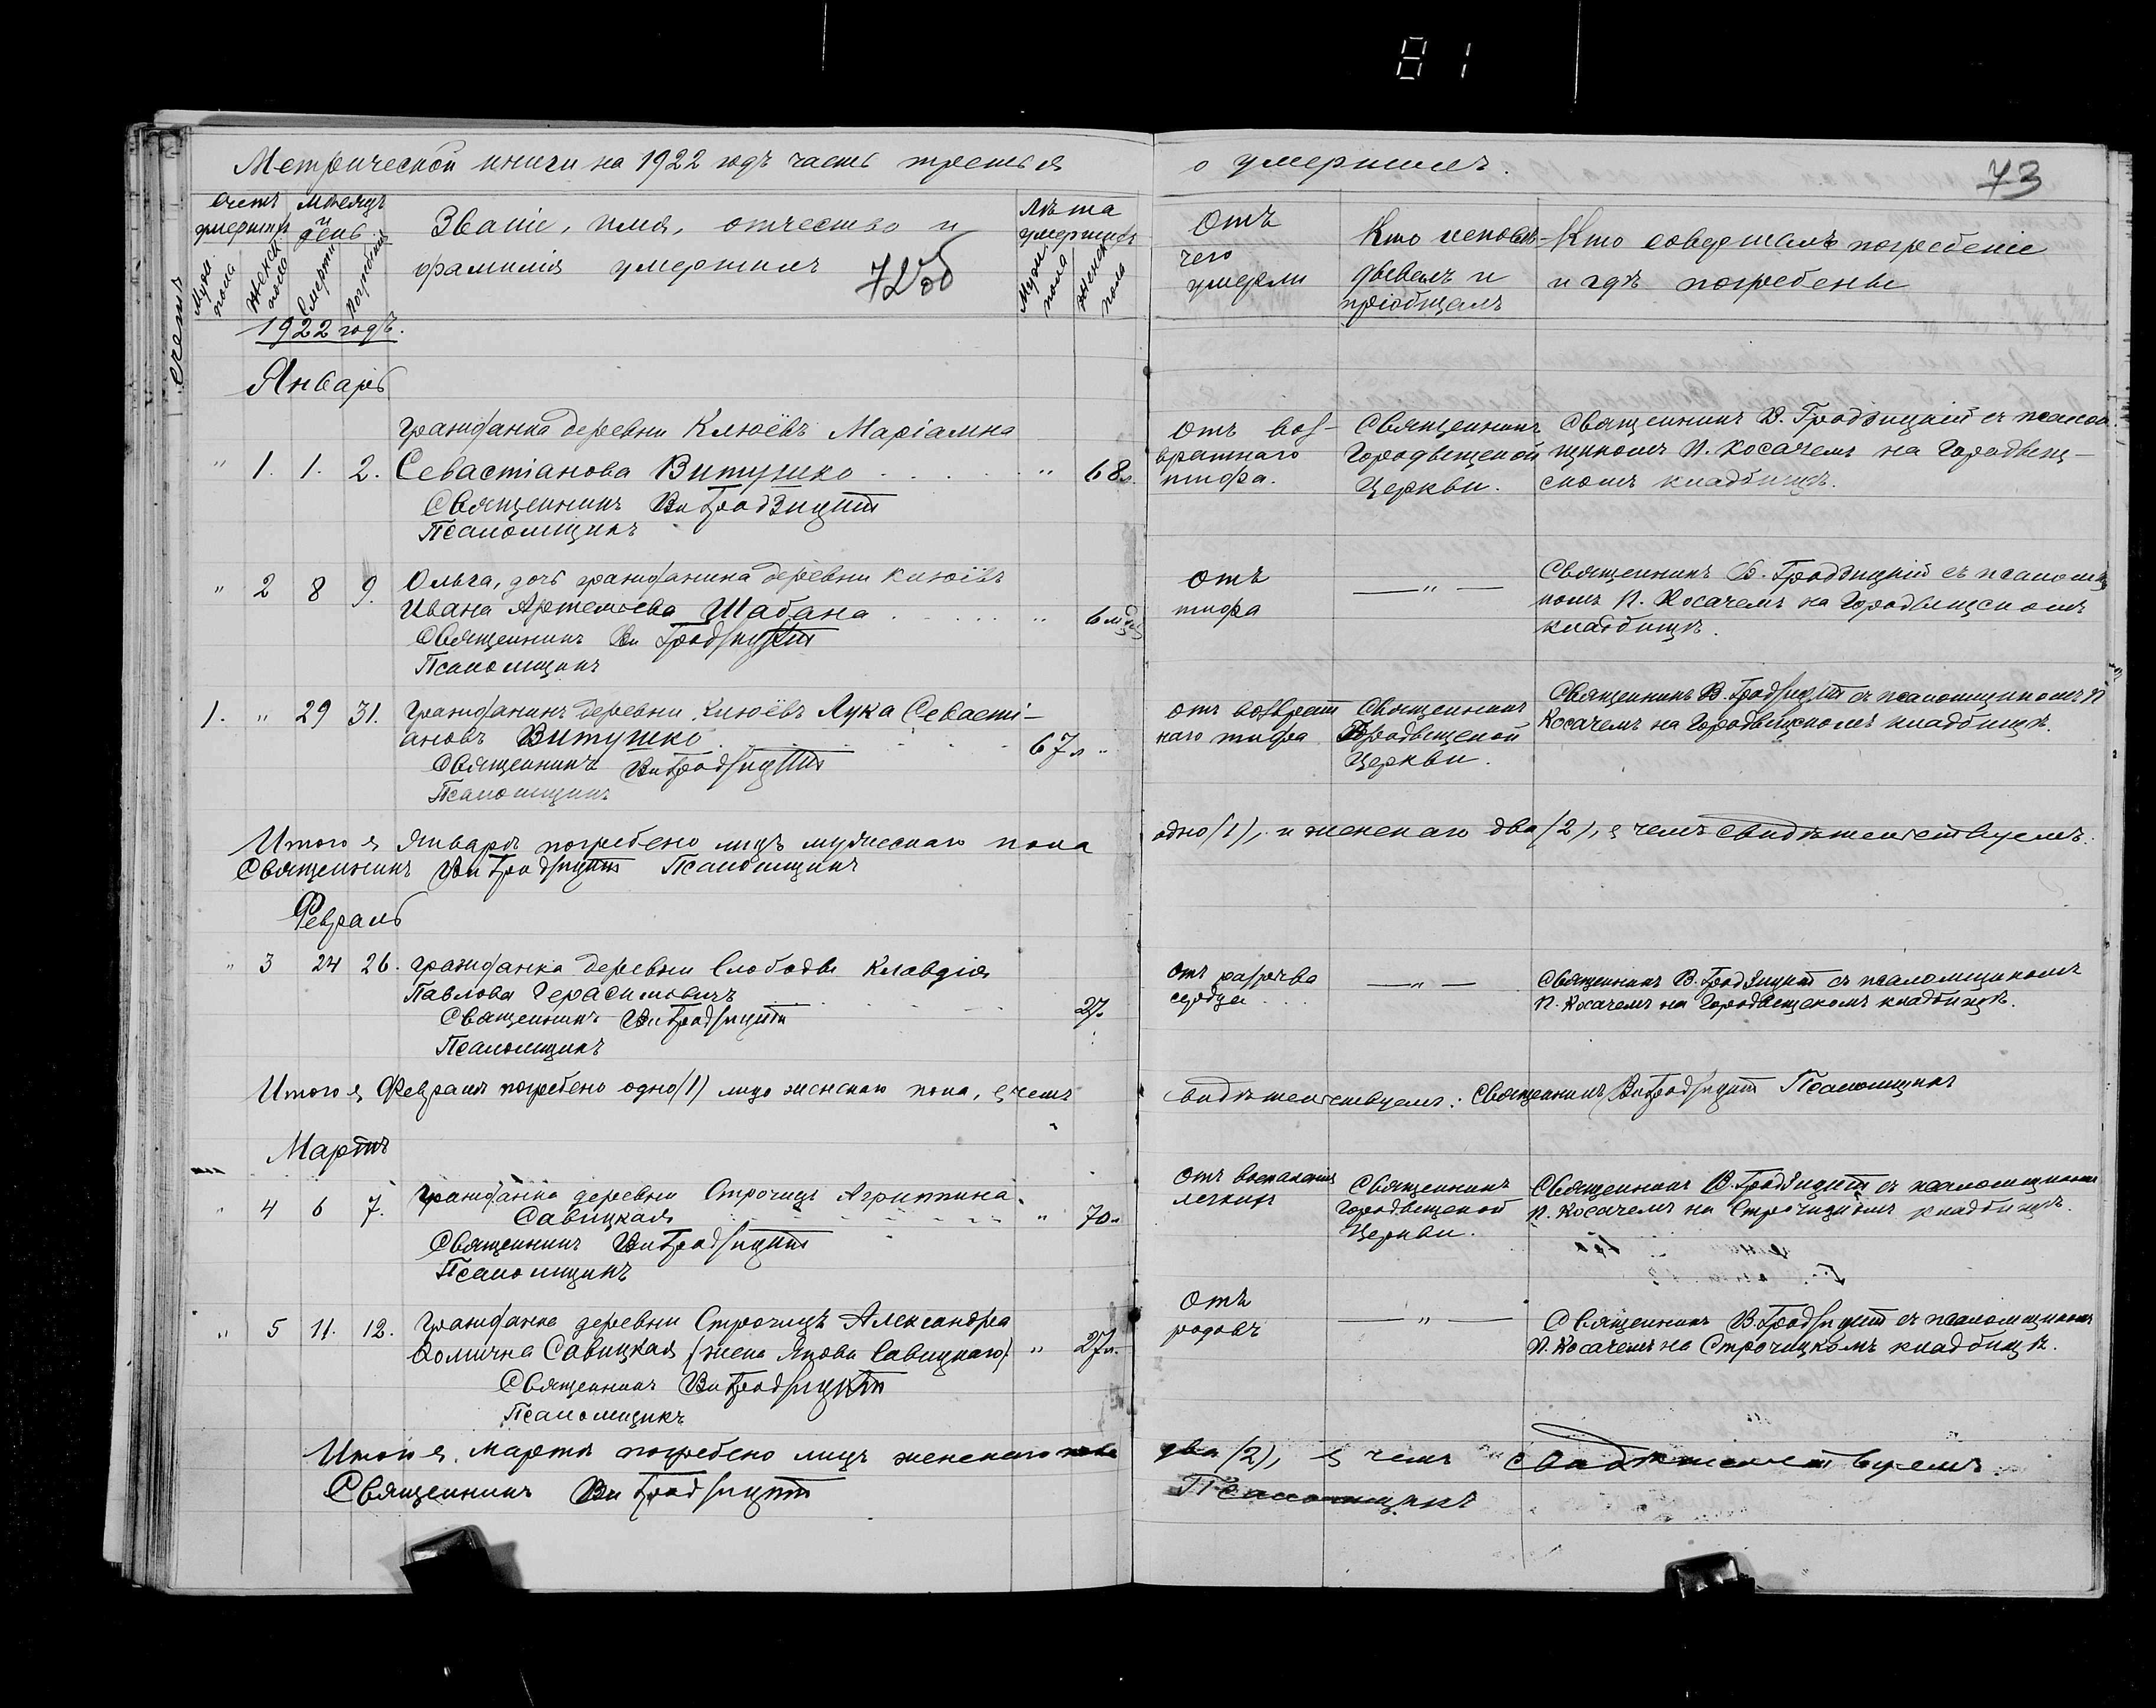 81
Метрической книги на 1922 годъ часть третья
о умершихъ.
73
Счетъ умершихъ
Мѣсяцъ и день
Звание, имя, отчество и
фамилія умершихъ
72об
Лѣта умершихъ
Отъ чего умерли
Кто исповѣ-
дывалъ и
пріобщалъ
Кто совершалъ погребеніе
и гдѣ погребены
Мужс. пола
Женск. пола
Смерти
Погребенія
Мужс. пола
Женск. пола
Счетъ
1922 годъ.
Январь
Гражданка деревни Клюёвъ Маріамна
" 1. 1. 2. Севастіанова Витушко " 68л.
Священникъ Ви Гродзицкій
Псаломщикъ
Отъ воз-
вратнаго
тифа.
Священникъ
Городыщской
Церкви.
Священникъ В. Гродзицкій съ псалом
щикомъ П. Косачемъ на Городыщ-
скомъ кладбищѣ.
" 2 8 9. Ольга, дочь гражданина деревни Клюёвъ
Ивана Артемьева Шабана " 6
Священникъ Ви Гродзицкій
Псаломщикъ
Отъ
тифа
— " —
Священникъ В. Гродзицкій съ псаломщи
комъ П. Косачемъ на Городыщскомъ
кладбищѣ.
1. " 29 31. Гражданинъ деревни Клюёвъ Лука Севасті-
ановъ Витушко 67л "
Священникъ Ви Гродзицкій
Псаломщикъ
Отъ возврат
наго тифа
Священникъ
Городыщской
Церкви.
Священникъ В. Гродзицкій съ псаломщикомъ П
Косачемъ на Городыщскомъ кладбищѣ.
Итого в Январѣ погребено лицъ мужескаго пола
одно (1), и женскаго два (2), в чемъ свидѣтельствуемъ:
Священникъ Ви Гродзицкій Псаломщикъ
Февраль
" 3 24 26. Гражданка деревни Слободы Клавдія
Павлова Герасимовичъ 27л
Священникъ Ви Гродзицкій
Псаломщикъ
Отъ разрыва
сердца
— " —
Священникъ В. Гродзицкій съ псаломщикомъ
П. Косачемъ на Городыщскомъ кладбищѣ.
Итого в Февралѣ погребено одно (1) лицо женскаго пола, в чемъ
свидѣтельствуемъ: Священникъ Ви Гродзицкій Псаломщикъ
Мартъ
" 4 6 7. Гражданка деревни Строчицъ Агриппина
Савицкая " 70л
Священникъ Ви Гродзицкій
Псаломщикъ
Отъ воспаленія
легкихъ
Священникъ
Городыщской
Церкви.
Священникъ В. Гродзицкій съ псаломщикомъ
П. Косачемъ на Строчицкомъ кладбищѣ.
" 5 11. 12. Гражданка деревни Строчицъ Александра
Фомична Савицкая (жена Якова Савицкаго) " 27л.
Священникъ Ви Гродзицкій
Псаломщикъ
Отъ
родовъ
— " —
Священникъ В. Гродзицкій съ псаломщикомъ
П. Косачемъ на Строчицкомъ кладбищѣ.
Итого в Мартѣ погребено лицъ женскаго пола
два (2), в чемъ свидѣтельствуемъ:
Священникъ Ви Гродзицкій
Псаломщикъ